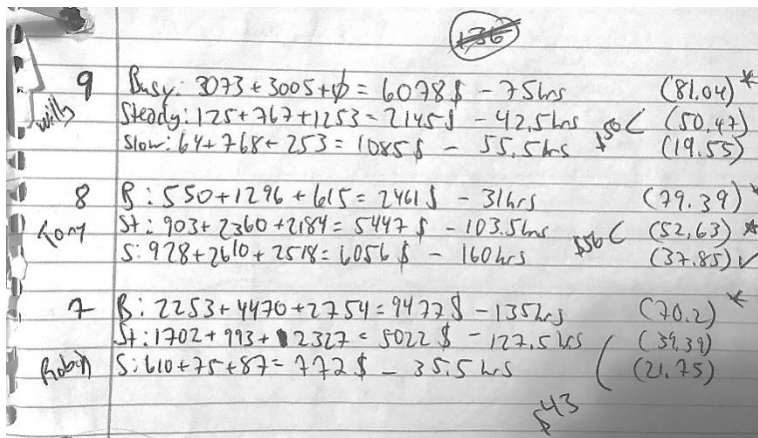 136
9 Busy: 3073+3005+ϕ= 6078$ - 75hrs (81.04)*
Willy Steady: 125+767+1253=2145$ - 42.5hrs $50< (50.47)
Slow: 64+768+253=1085$ - 55.5hrs (19.55)
8 B: 550+1296+615=2461$ - 31hrs (79.39)*
Tony St: 903+2360+2184=5447$ - 103.5hrs $56( (52.63)*
S: 928+2610+2518=6056$ - 160hrs (37.85)✓
7 B: 2253+4470+2754=9477$ - 135hrs (70.2)*
St: 1702+993+2327=5022$ - 127.5hrs (39.39)
S: 610+75+87=772$ - 35.5hrs ( (21.75)
$43